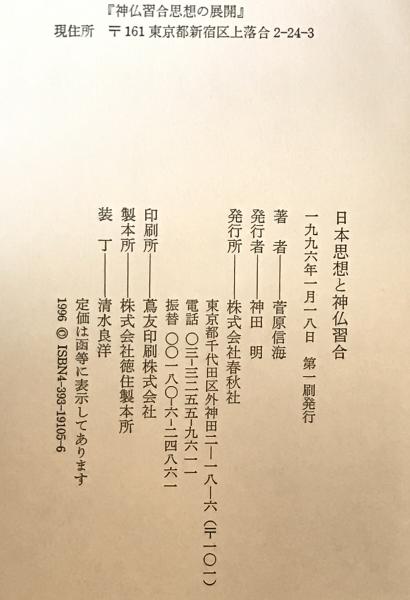 『神仏習合思想の展開』
現住所　〒161 東京都新宿区上落合2-24-3
日本思想と神仏習合
一九九六年一月一八日　第一刷発行
著　者――菅原信海
発行者――神田　明
発行所――株式会社春秋社
東京都千代田区外神田二―一八―六（〒一〇一）
電話　〇三―三二五五―九六一一
振替　〇〇一八〇―六―二四八六一
印刷所――萬友印刷株式会社
製本所――株式会社徳住製本所
装　丁――清水良洋
定価は函等に表示してあります
1996 © ISBN4-393-19105-6